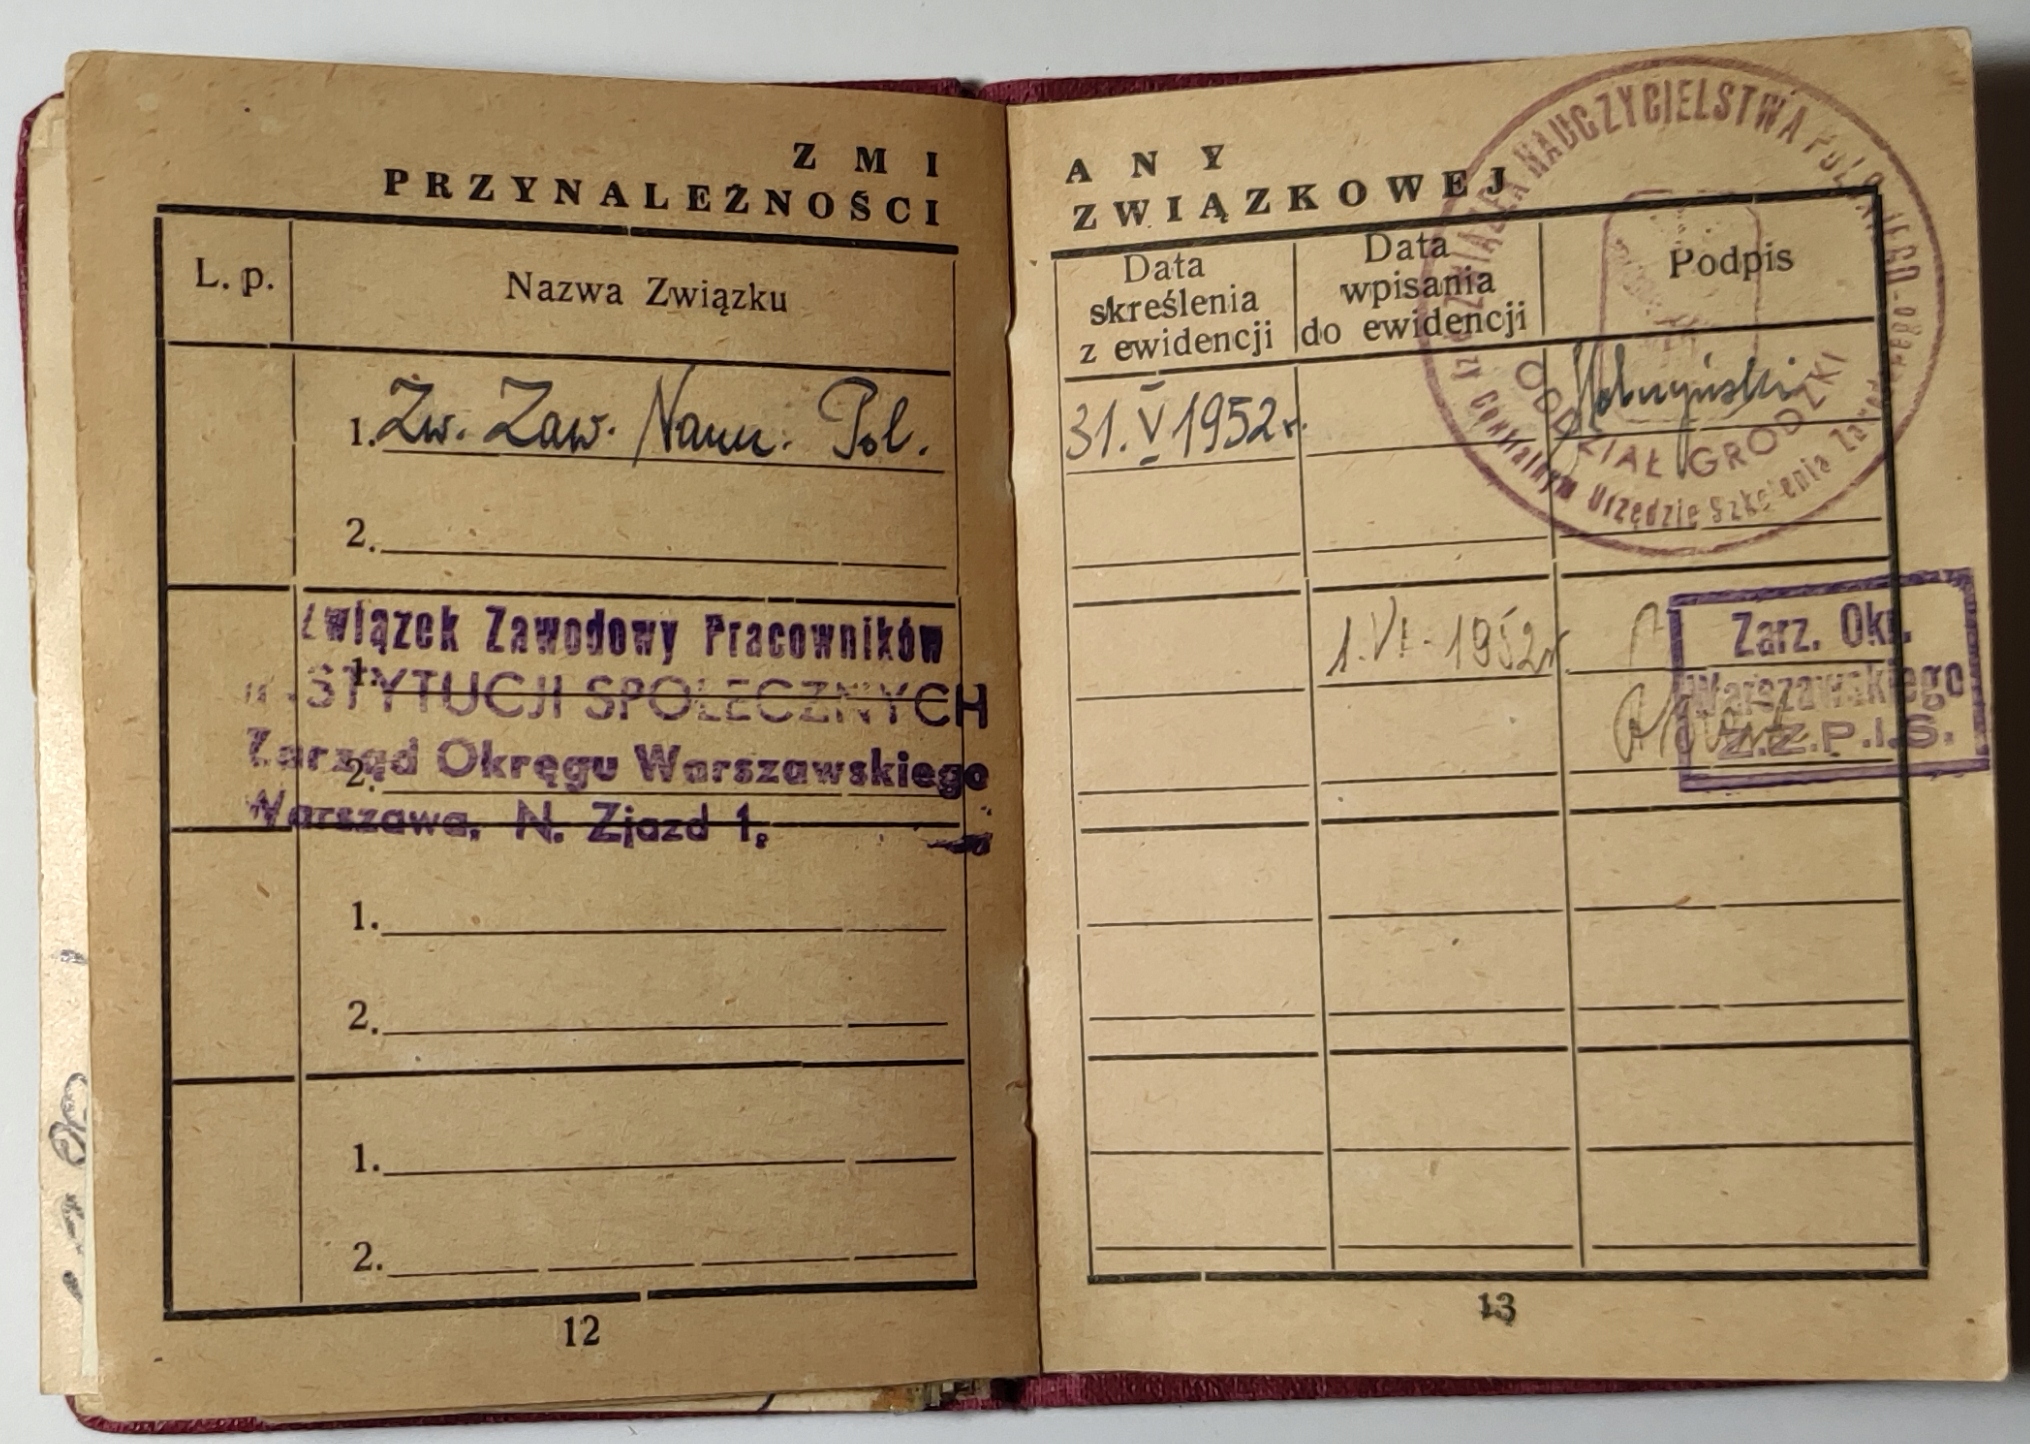 Z M I
PRZYNALEŻNOŚCI
L. p.
Nazwa Związku
1. Zw. Zaw. Naucz. Pol.
2.
Związek Zawodowy Pracowników
1.
INSTYTUCJI SPOŁECZNYCH
Zarząd Okręgu Warszawskiego
2.
Warszawa, N. Zjazd 1,
1.
2.
1.
2.
12
A N Y
ZWIĄZKOWEJ
Data
skreślenia
z ewidencji
Data
wpisania
do ewidencji
Podpis
NAUCZYCIELSTWA POLSKIEGO
ODDZIAŁ GRODZKI
Centralnym Urzędzie Szkolenia Zawod.
31. V 1952 r.
1. VI - 1952 r
Zarz. Okr.
Warszawskiego
Z.Z.P.I.S.
13